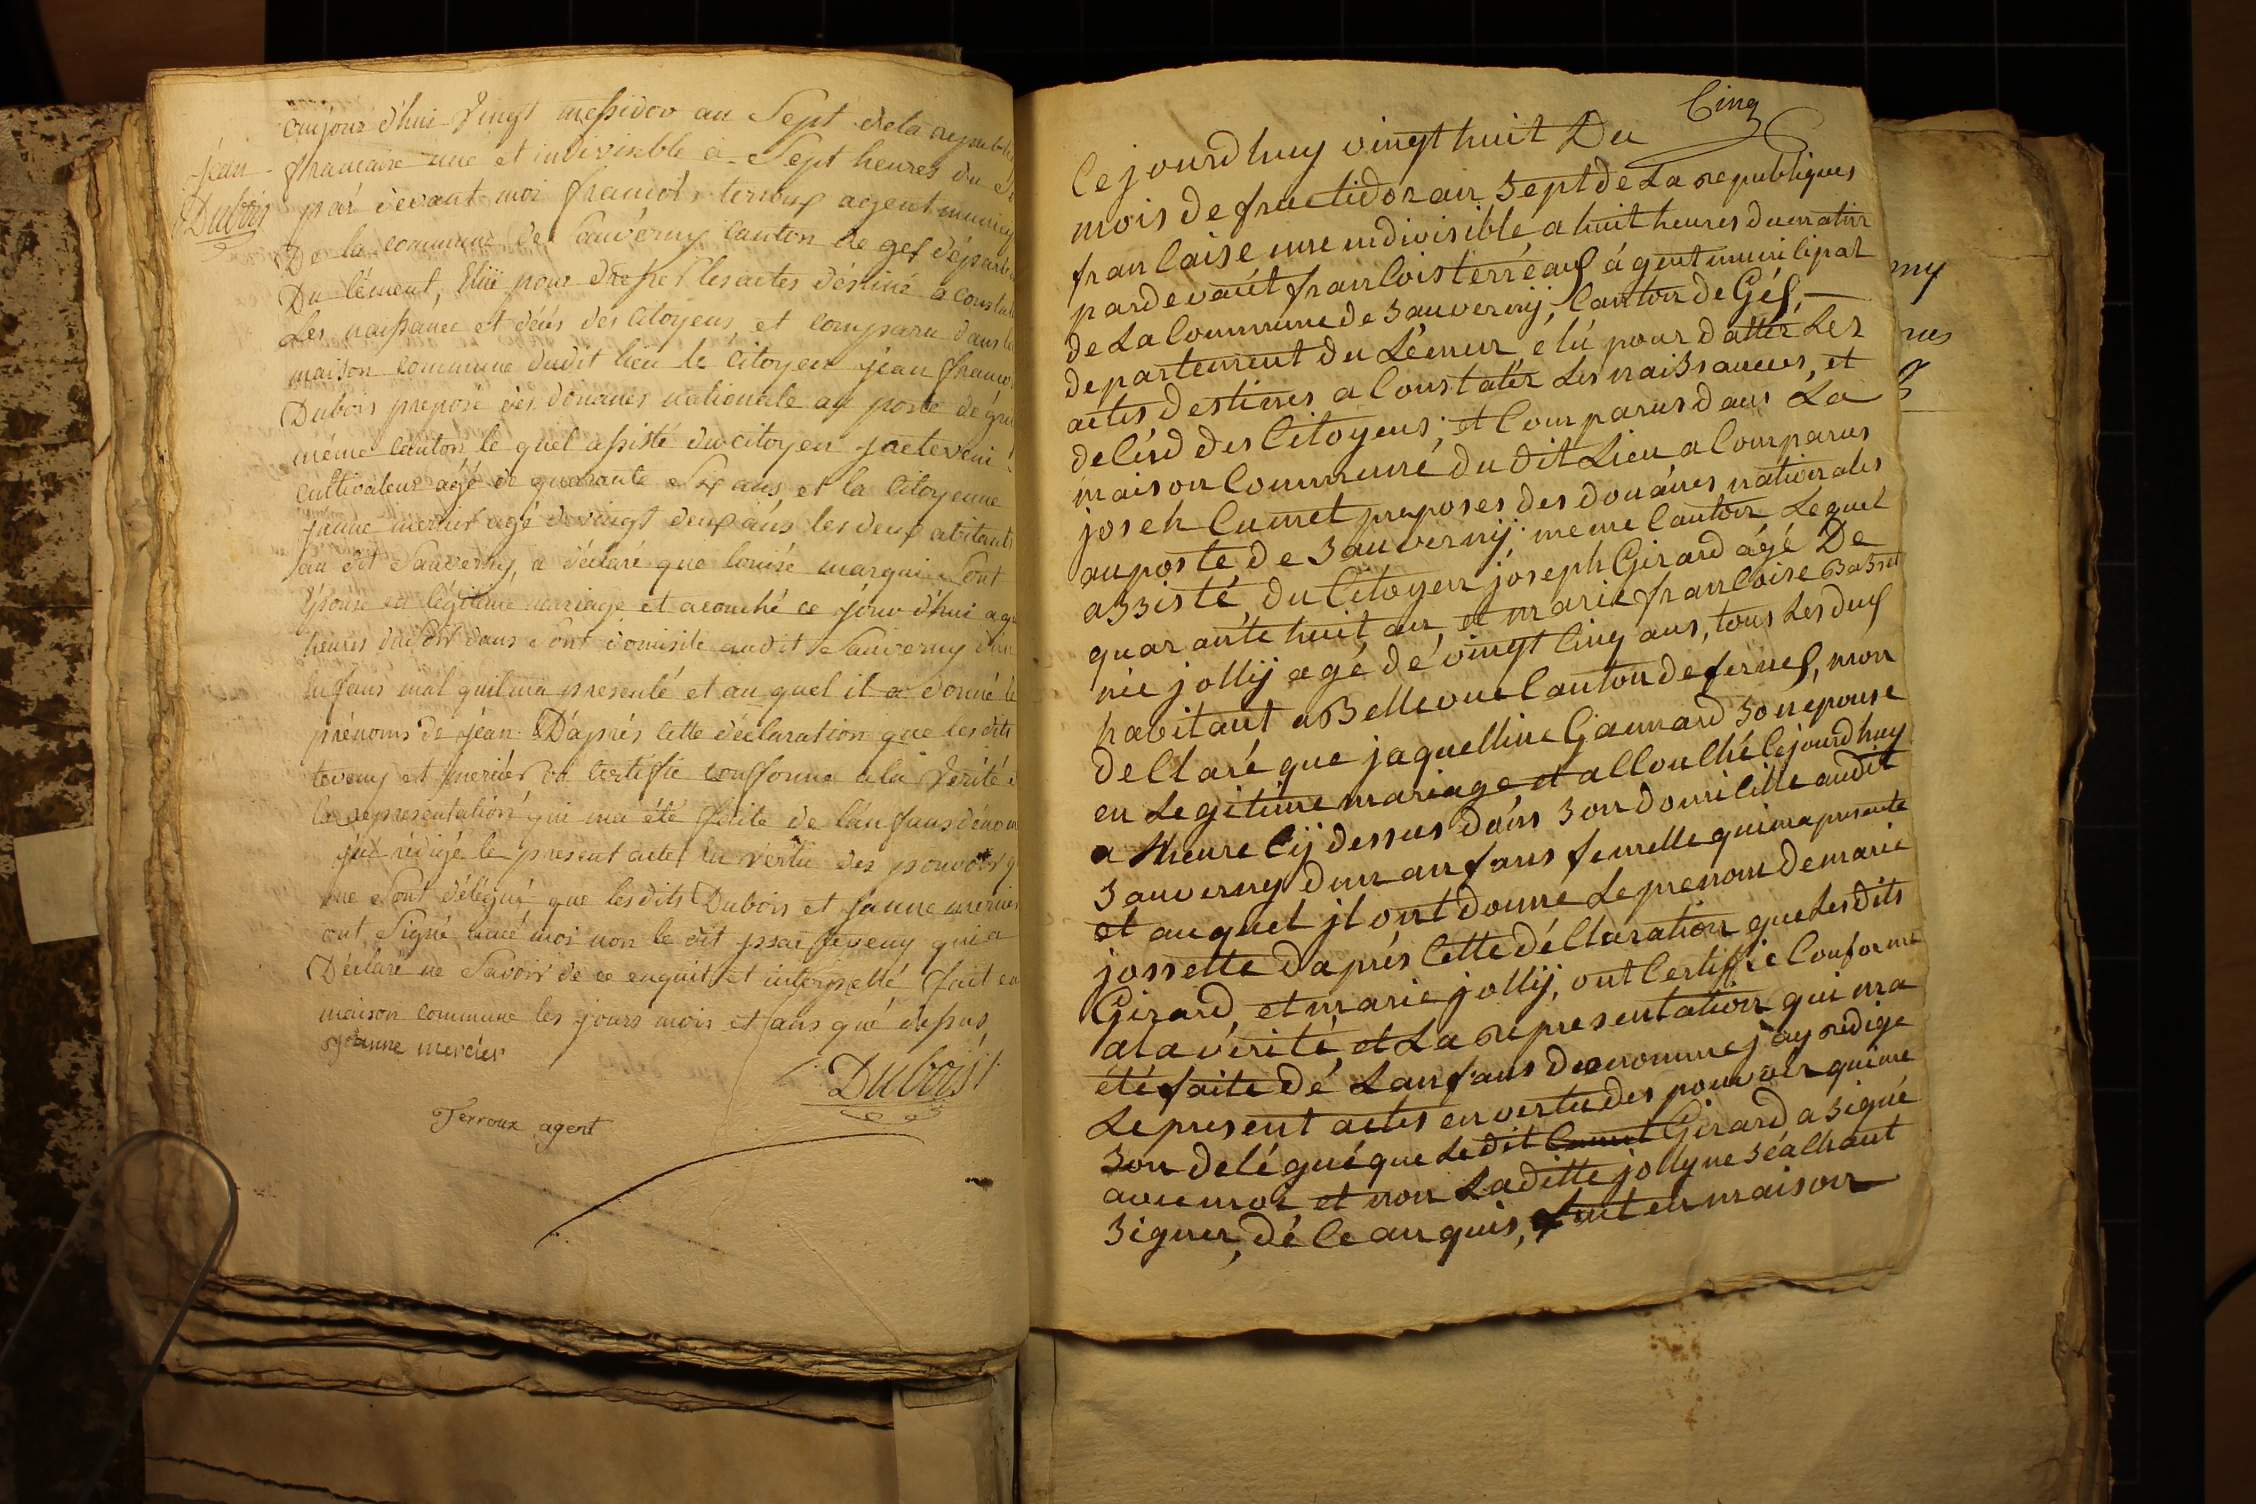 oujour d'hui Vingt messidor an Sept dela republi
Jean
francaise une et indivisible a Sept heures du
Dubois
par devant moi francois terroux agent munici
De la commune de Sauverny Canton de gex départ
Du lément, Elü pour dresser les actes déstiné a const
Les naissance et décés des Citoyens, et comparu dans
maison commune dudit lieu le Citoyen jean franco
Dubois préposé dès douanes nationale au poste de
même canton le quel assisté du citoyen
cultivateur agé de quarante Six ans et la Citoyenne
janne mercier agé de vingt deux ans les deux abitant
au dit Sauverny, a déclaré que louise marqui Sont
Epouse en légitime mariage et acouché ce jour d'hui a
heures du soir dans Sont domisile audit Sauverny d'un
Enfans mal quil ma presenté et au quel il a donné
prénoms de jean. D'aprés cette déclaration que les dits
teveny et mercier on certifie conforme a la Verité
la representation qui ma été faite de l'anfans dénom
jái rédigé le present acte en vertu des pouvoir q
me sont délégué que les dits Dubois et janne mercier
ont Signé avec moi non le dit teveny qui a
Déclaré ne Savoir de ce enquit et interpellé fait en
maison commune les jours mois et ans que dessus
janne mercier
Dubois
Terroux agent
Cinq
Ce jourd huy vingt huit Du
mois de fructidor an Sept de La republiques
francaise une indivisible a huit heures du matin
pardevant francois terréaux ágent municipal
de La Commune de Sauvernij, Canton de Géx,
departement du Lémen, élú pour datter Les
actes destines a Constatér Les naissances, et
deCéd des Citoyens; et Comparus dans La
maison Communé du dit Lieu a Comparus
joseh Cumet preposes des doüánes nationales
au poste de Sauvernij meme Canton Lequel
assisté, du Citoyen joseph Girard ágé De
quarante huit an, et marie francoise
nie jollij agé dé vingt Cinq ans, tous Les dux
habitant a Bellevue Canton de fernex, mon
deClaré que jaquelline Gaunard Son epouse
en Legitime mariage et aCCouChé Ce jourd huy
a Lheure Cij dessus dans Son domiCille audit
Sauverny dun anfans femelle quima presente
et auquel jl ont donné Le prenom de marie
jossette Daprés Cette déClaration que Les dits
Girard, et marie jollij, ont Certiffié Conforme
ala vérité, et La representation qui ma
été faite dé Lanfans denommé j'ay redige
Le present actes en vertu des pouvoir quime
Son delégué que Ledit Cumet Girard a Signé
avec moi et non Laditte jolly ne SéaChant
Signer, dé Ce anquis, fait en maison
my